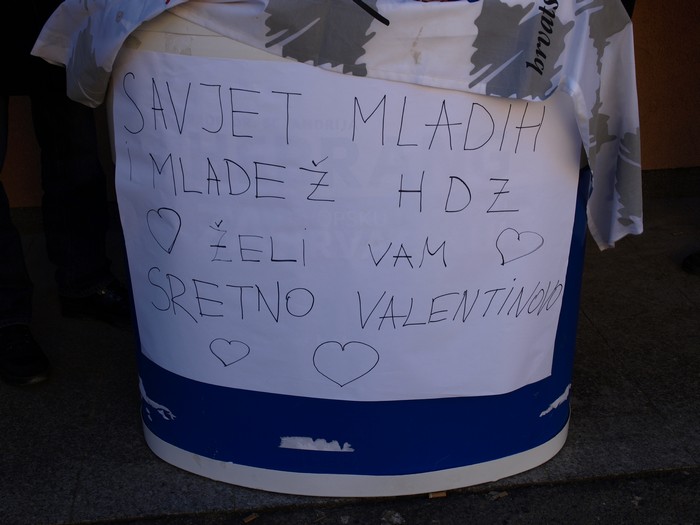 hrvats
SAVJET MLADIH
i MLADEŽ HDZ
ŽELi VAM
SRETNO VALENTiNOVO